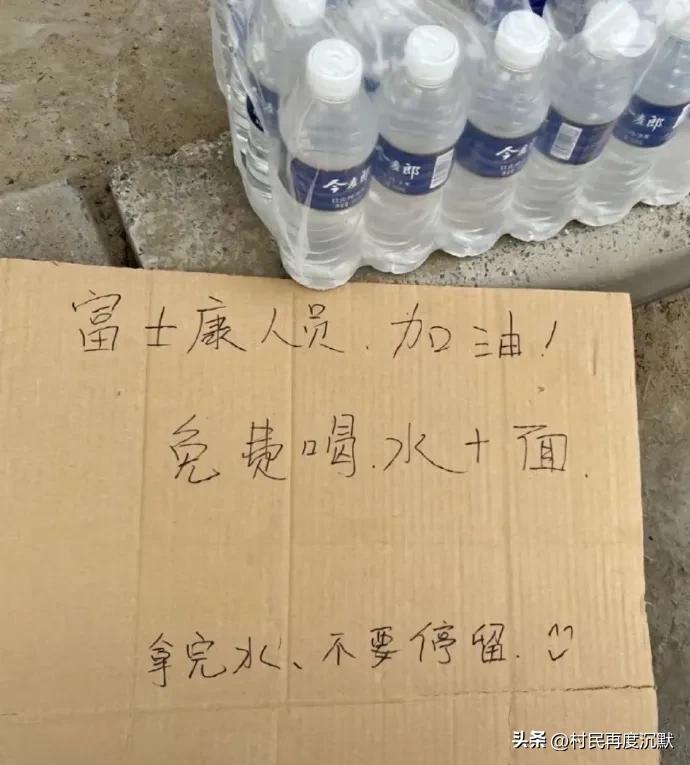 今麦郎
今麦郎
今麦
麦郎
富士康人员.加油!
免费喝.水+面.
拿完水、不要停留.
头条 @村民再度沉默